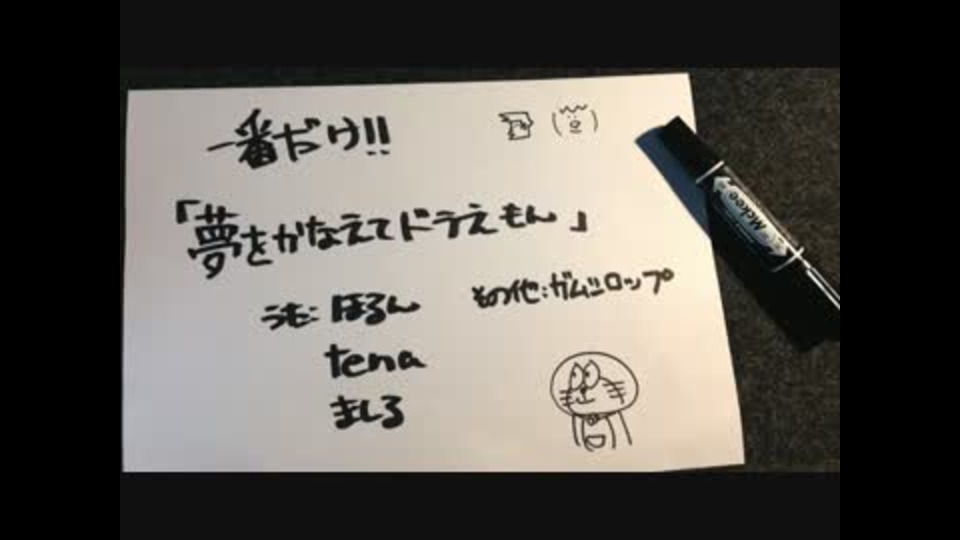 一番だけ!!
「夢をかなえてドラえもん」
うた:ほるん
その他:ガムシロップ
tena
ましろ
Mckee